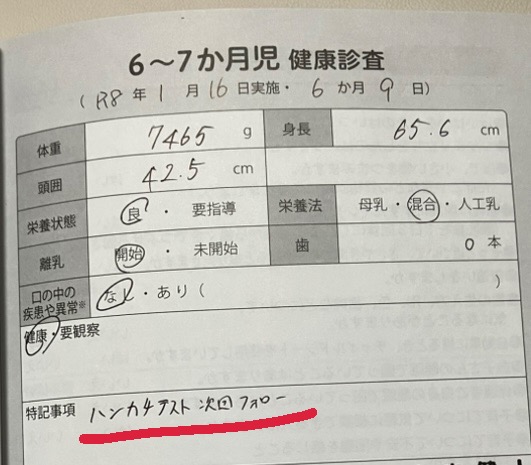 6～7か月児 健康診査
(R8年1月16日実施・6か月9日)
体重 7465 g 身長 65.6 cm
頭囲 42.5 cm
栄養状態 良・要指導 栄養法 母乳・混合・人工乳
離乳 開始・未開始 歯 0本
口の中の疾患や異常※ なし・あり( )
健康・要観察
特記事項 ハンカチテスト次回フォロー